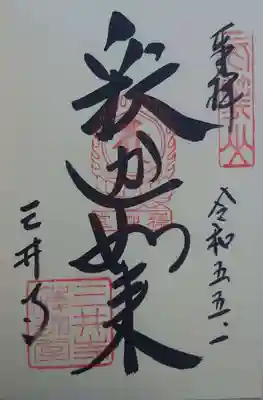 奉拝
令和五五・一
釈迦如来
三井寺